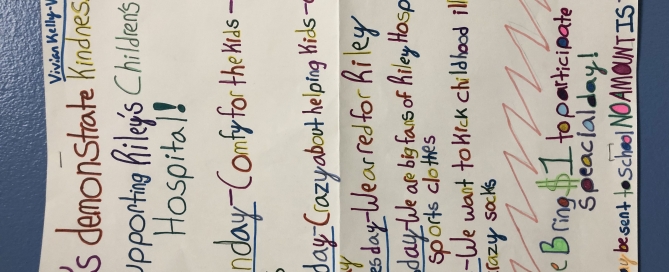 Vivian Kelly-V
s demonstrate Kindness
upporting Riley's Children's
Hospital!
nday-Comfy for the Kids-
day-Crazy about helping Kids-
esday-Wear red for Riley
day-We are big fans of Riley Hosp
sports clothes
-We want to Kick childhood ill
razy socks
e Bring $1 to participate
speacial day!
y be sent to school NO AMOUNT IS